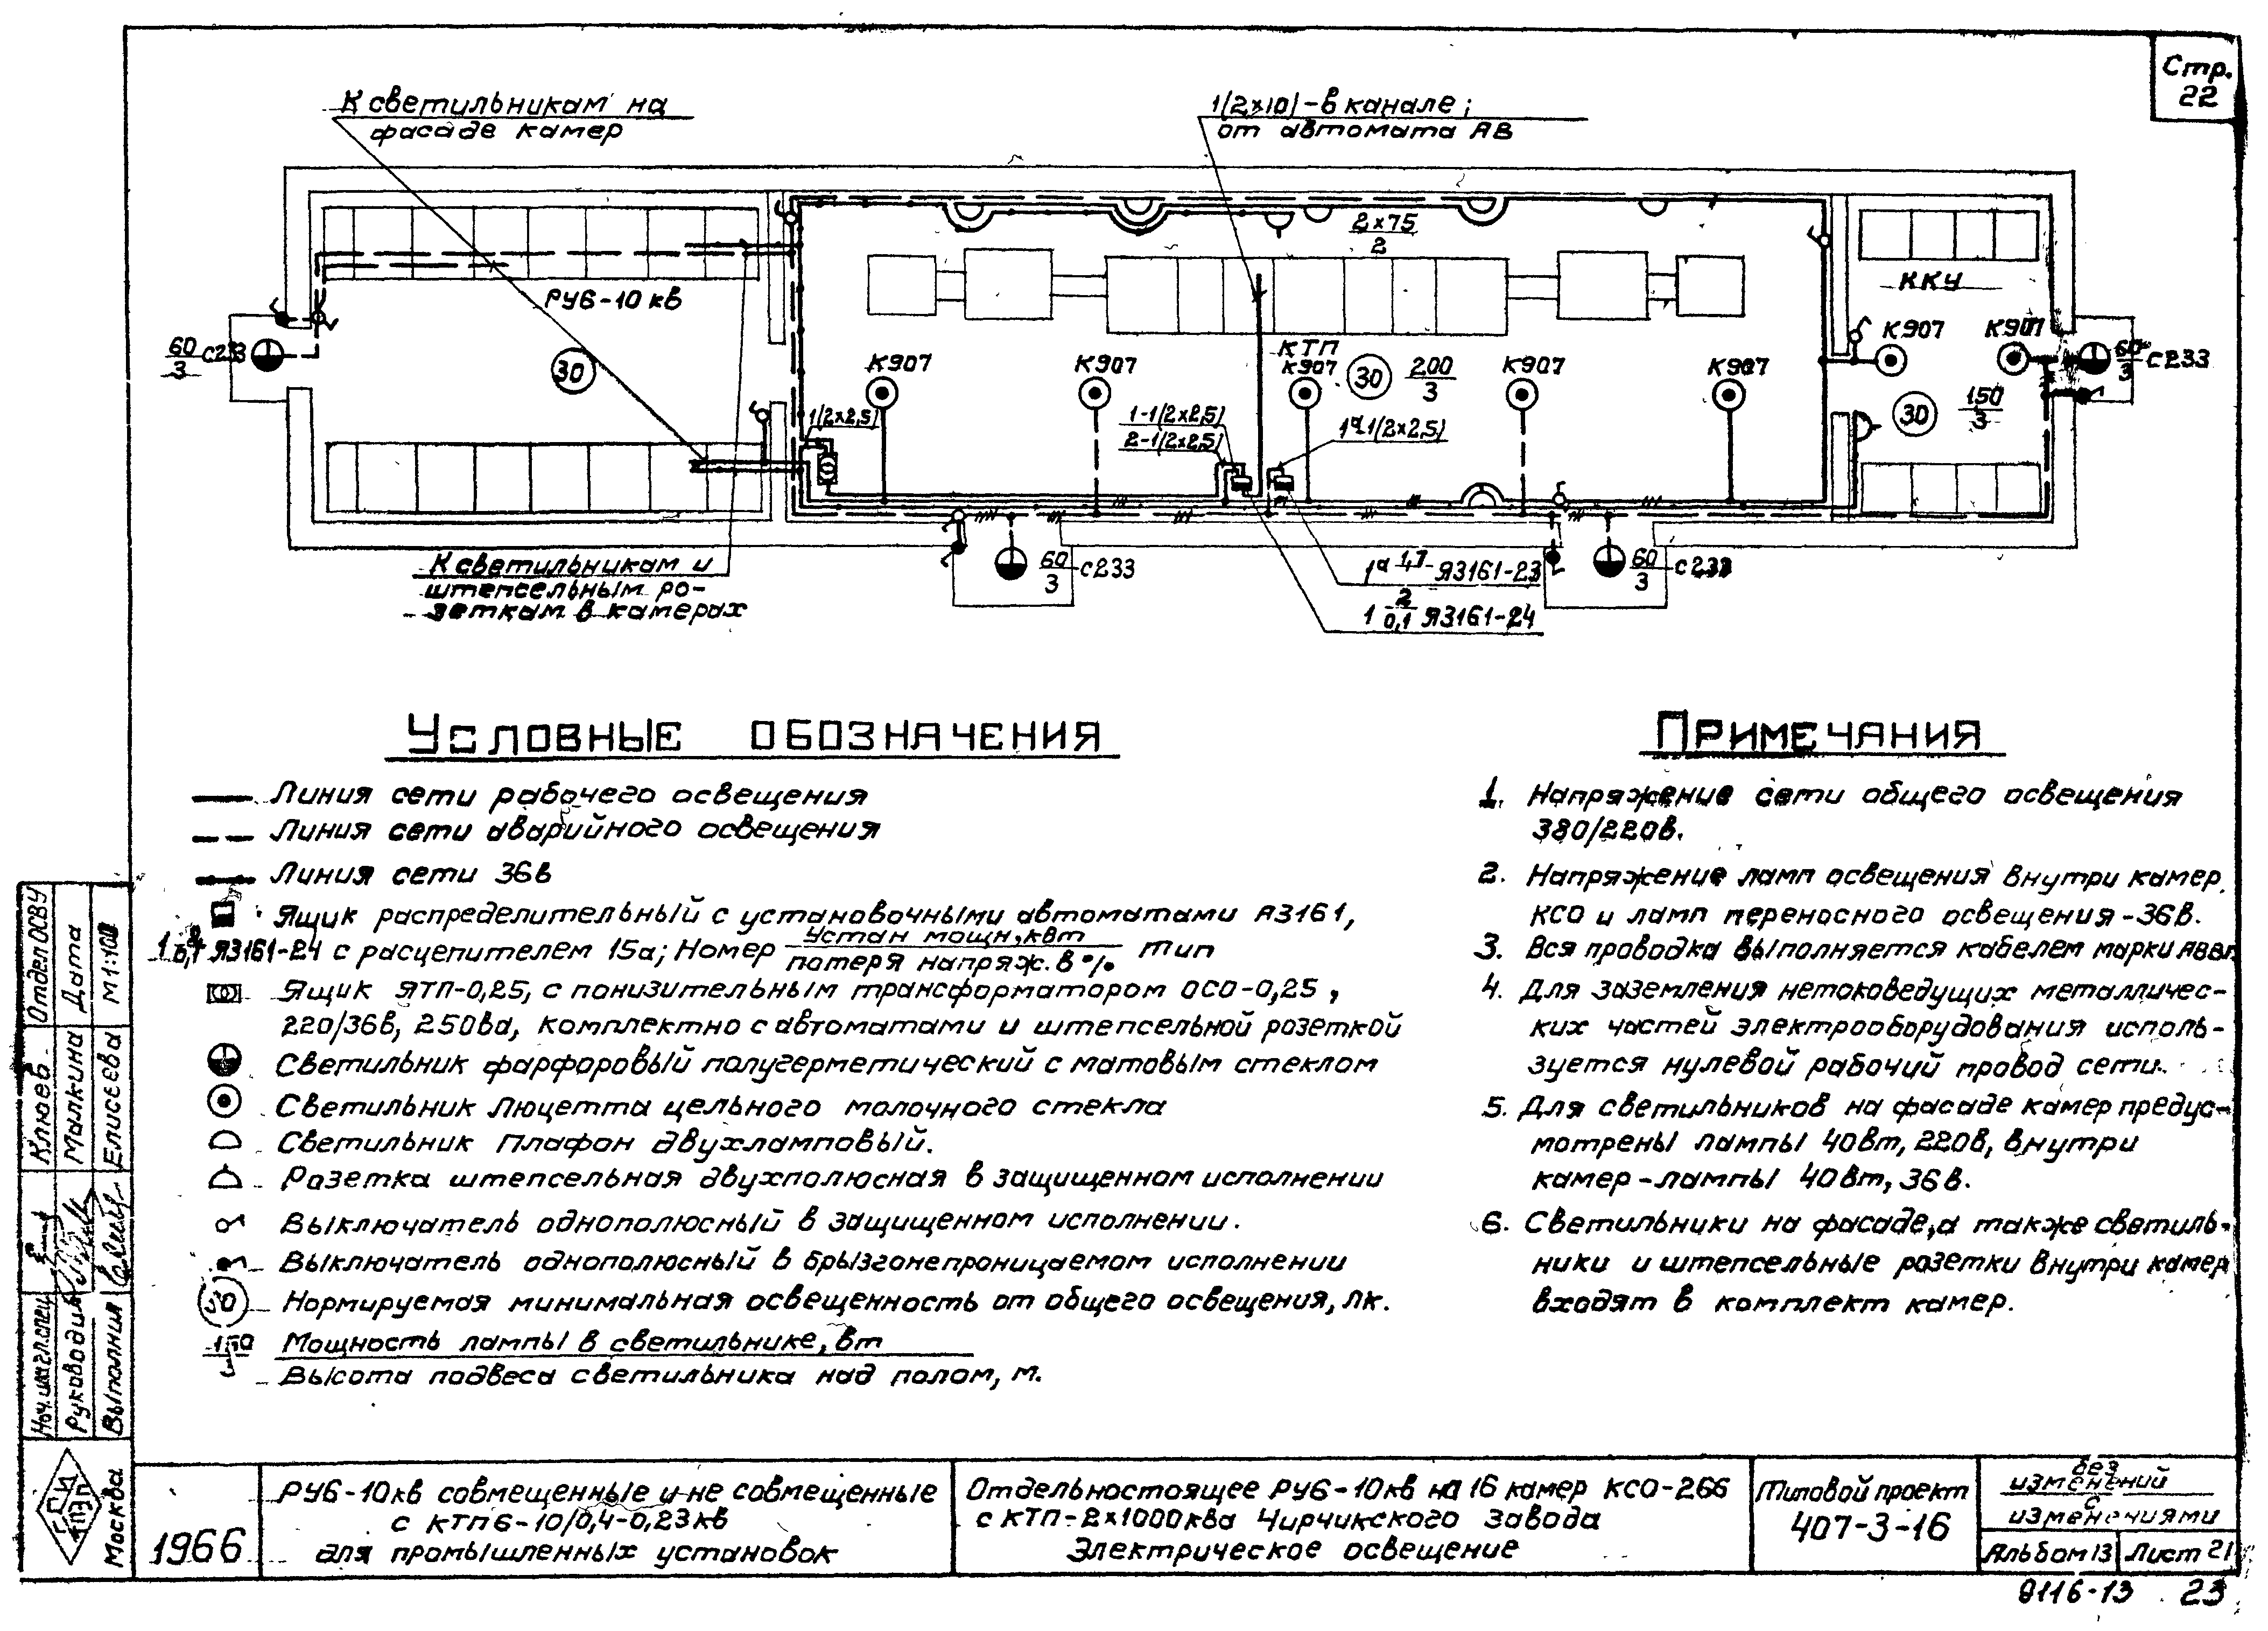 Стр.
22
К светильникам на
фасаде камер
1(2×10)-в канале;
от автомата АВ
2×75
2
РУ6-10 кв
ККУ
60
3
С233
30
КТП
К907
К907
К907
К907
К907
К907
К907
30
200
3
30
150
3
60
3
С233
1(2×2,5)
1-1(2×2,5)
2-1(2×2,5)
1ª1(2×2,5)
К светильникам и
штепсельным ро-
зеткам в камерах
60
3
С233
1ª 1,7 Я3161-23
1 2/0,1 Я3161-24
60
3
С233
Условные обозначения
Линия сети рабочего освещения
Линия сети аварийного освещения
Линия сети 36в
Ящик распределительный с установочными автоматами А3161,
Я3161-24 с расцепителем 15а; Номер Устан мощн, квт / потеря напряж. в % тип
Ящик ЯТП-0,25, с понизительным трансформатором ОСО-0,25,
220/36в, 250ва, комплектно с автоматами и штепсельной розеткой
Светильник фарфоровый полугерметический с матовым стеклом
Светильник Люцетта цельного молочного стекла
Светильник Плафон двухламповый.
Розетка штепсельная двухполюсная в защищенном исполнении
Выключатель однополюсный в защищенном исполнении.
Выключатель однополюсный в брызгонепроницаемом исполнении
30 Нормируемая минимальная освещенность от общего освещения, лк.
150 Мощность лампы в светильнике, вт
Высота подвеса светильника над полом, м.
Примечания
1. Напряжение сети общего освещения
380/220в.
2. Напряжение ламп освещения внутри камер
КСО и ламп переносного освещения-36в.
3. Вся проводка выполняется кабелем марки АВВГ
4. Для заземления нетоковедущих металличес-
ких частей электрооборудования исполь-
зуется нулевой рабочий провод сети.
5. Для светильников на фасаде камер предус-
мотрены лампы 40вт, 220в, внутри
камер-лампы 40вт, 36в.
6. Светильники на фасаде, а также светиль-
ники и штепсельные розетки внутри камер
входят в комплект камер.
Отдел ОСВУ
Дата
М1:100
Клюев
Малкина
Елисеева
Руководил
Выполнил
Москва
1966
РУ6-10кв совмещенные и не совмещенные
с КТП6-10/0,4-0,23кв
для промышленных установок
Отдельностоящее РУ6-10кв на 16 камер КСО-266
с КТП-2×1000ква Чирчикского завода
Электрическое освещение
Типовой проект
407-3-16
без
изменений
с
изменениями
Альбом 13
Лист 21
9116-13 23